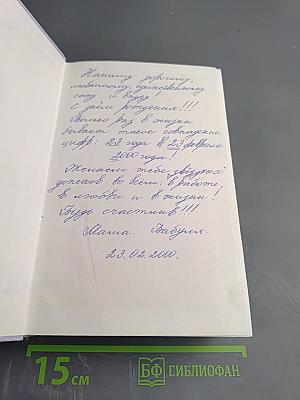 Нашему дорогому,
любимому, единственному
сыну и внуку
С днём рождения!!!
Только раз в жизни
бывает такое совпадение
цифр: 23 года в 23 февраля
2000 года!
Желаем тебе звёздных
успехов во всём: в работе,
в любви и в жизни!
Будь счастлив!!!
Мама.
23.02.2000.
15 см
БФ БИБЛИОФАН